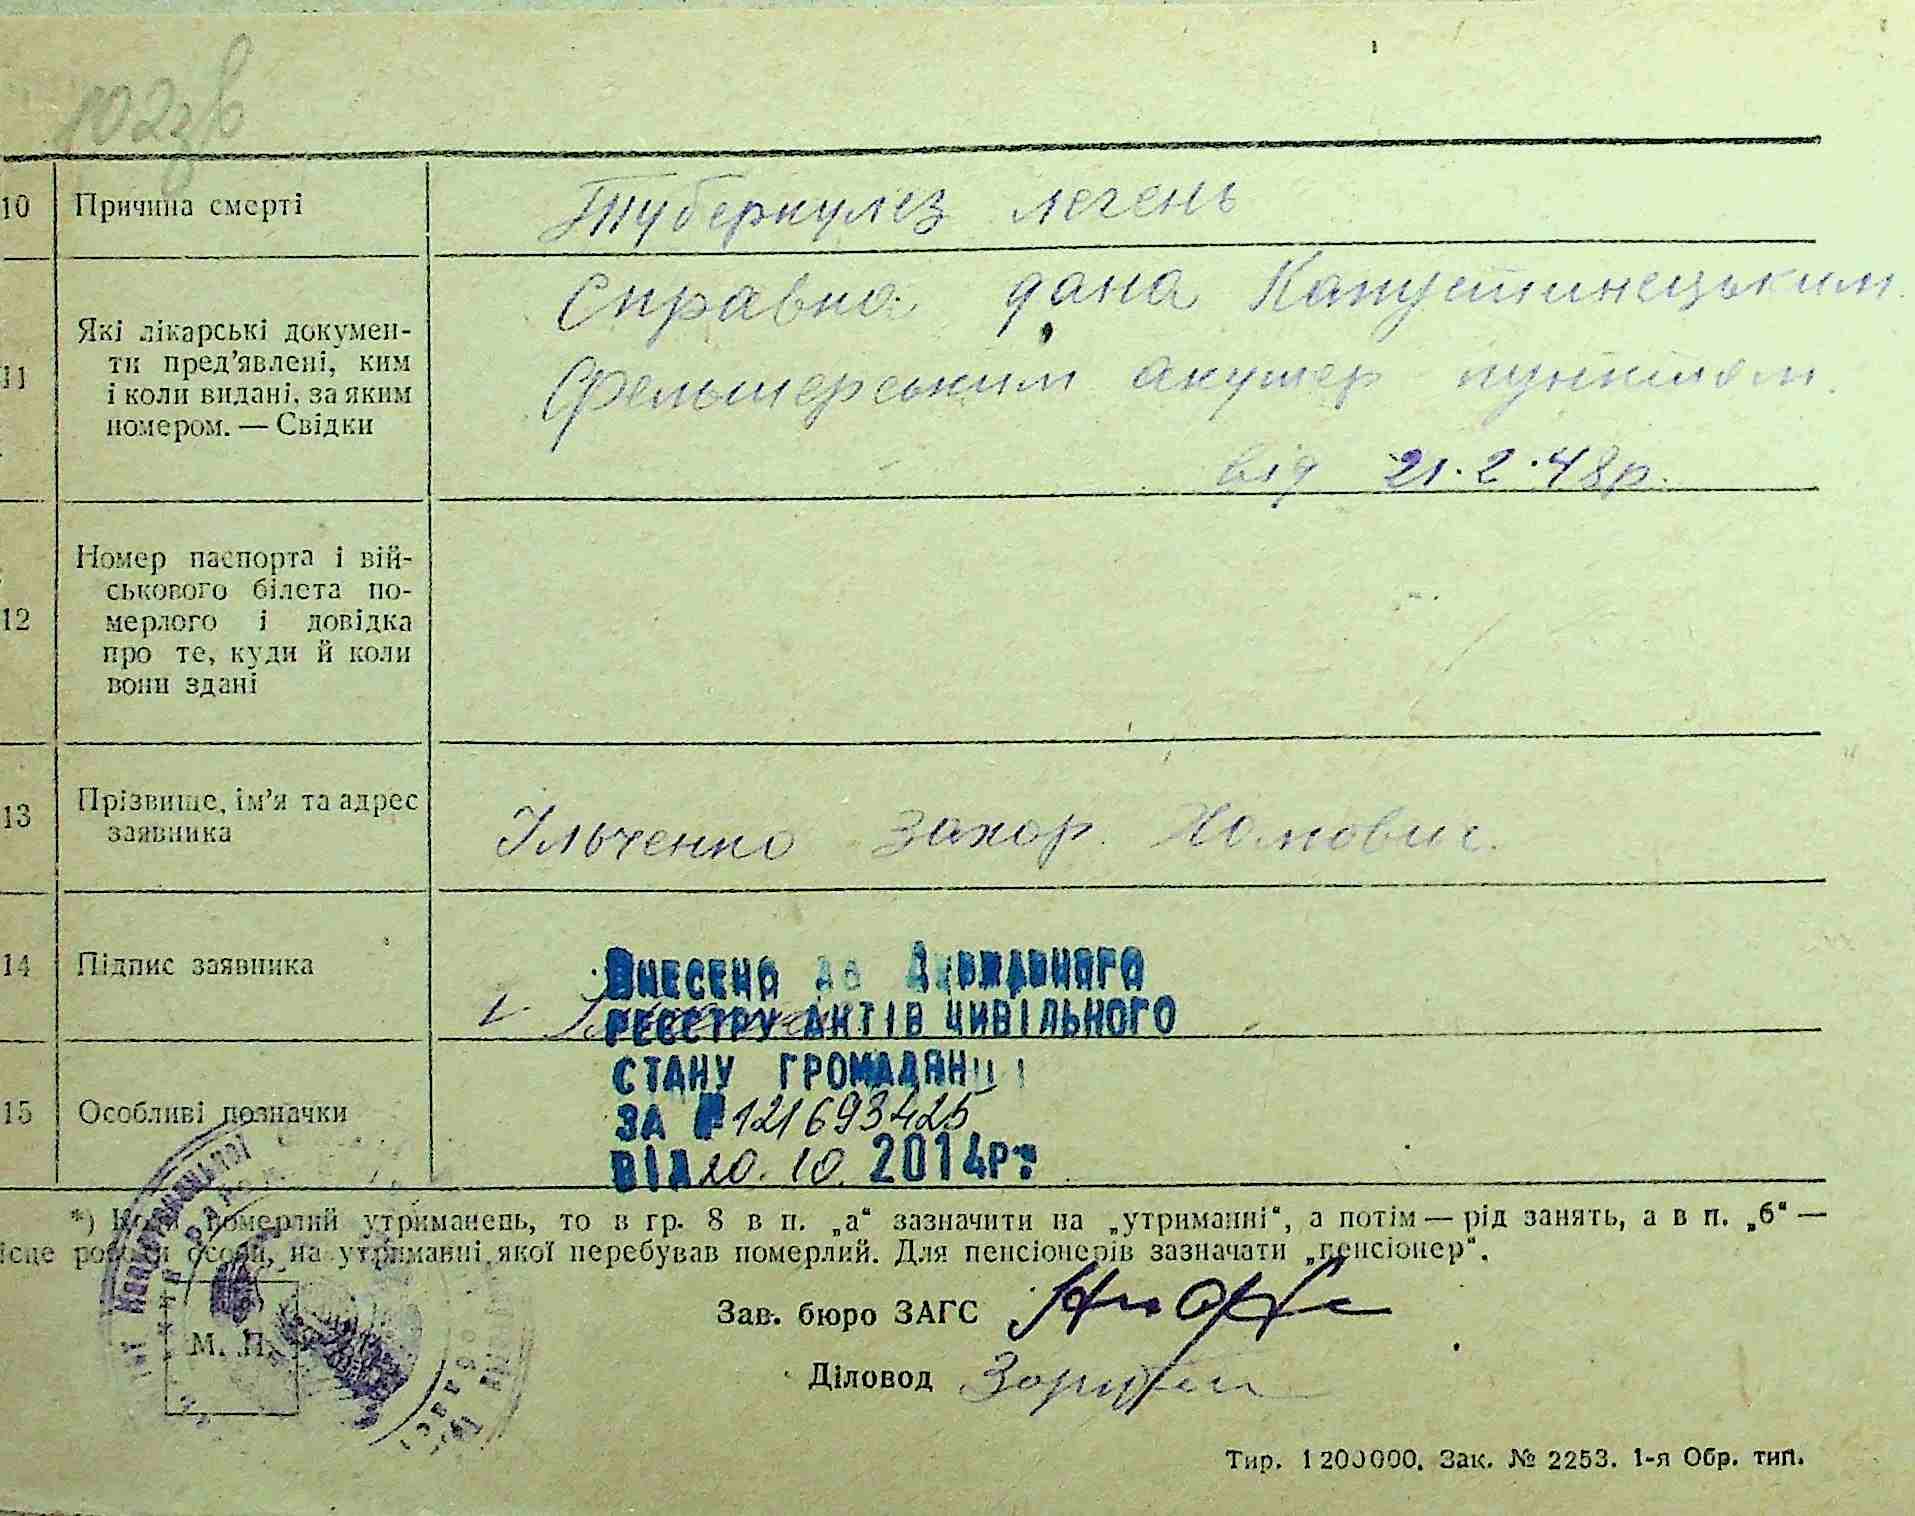 102зв
10 Причина смерті
Туберкулез легень
11 Які лікарські докумен-
ти пред'явлені, ким
і коли видані, за яким
номером. — Свідки
Справка дана Капустинецьким
Фельшерським акушер пунктом.
від 21.2.48р.
12 Номер паспорта і вій-
ськового білета по-
мерлого і довідка
про те, куди й коли
вони здані
13 Прізвище, ім'я та адрес
заявника
Ільченко Захор. Хомович.
14 Підпис заявника
15 Особливі позначки
Внесено до Державного
реєстру актів цивільного
стану громадян
за № 121693425
від 20.10.2014р.
*) Коли померлий утриманець, то в гр. 8 в п. „а“ зазначити на „утриманні“, а потім — рід занять, а в п. „б“ —
місце роботи особи, на утриманні якої перебував померлий. Для пенсіонерів зазначати „пенсіонер“.
Зав. бюро ЗАГС
М. П.
Діловод
Тир. 1200000. Зак. № 2253. 1-я Обр. тип.